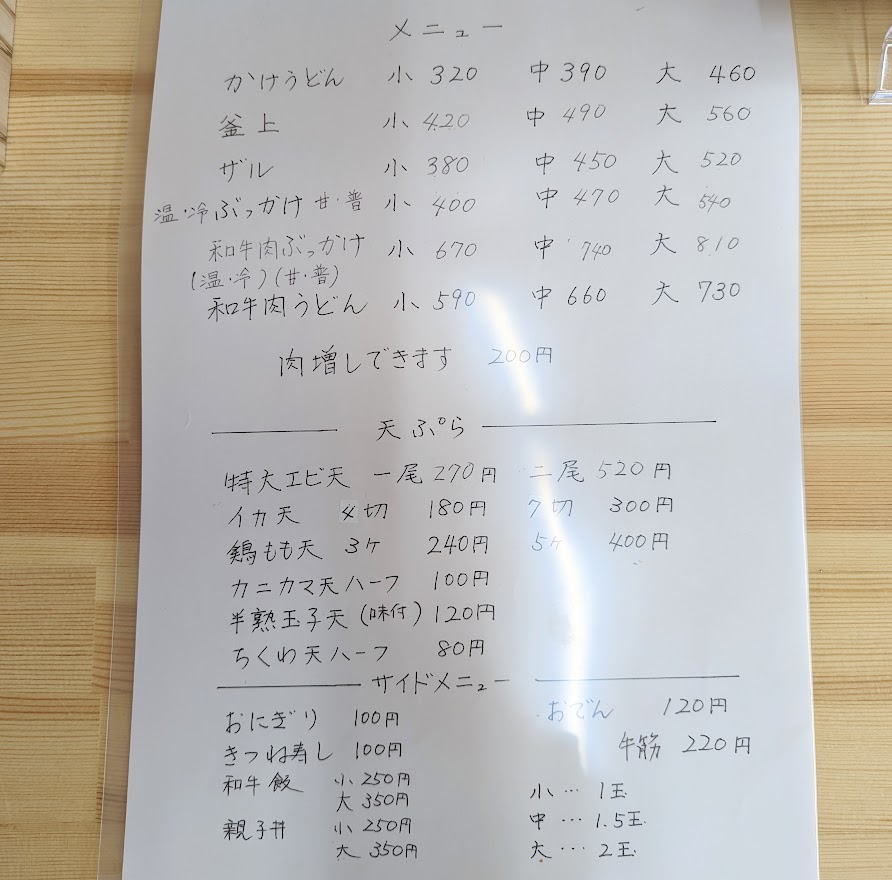 メニュー
かけうどん 小 320 中 390 大 460
釜上 小 420 中 490 大 560
ザル 小 380 中 450 大 520
温・冷ぶっかけ 甘・普 小 400 中 470 大 540
和牛肉ぶっかけ 小 670 中 740 大 810
(温・冷)(甘・普)
和牛肉うどん 小 590 中 660 大 730
肉増しできます 200円
天ぷら
特大エビ天 一尾 270円 二尾 520円
イカ天 4切 180円 7切 300円
鶏もも天 3ケ 240円 5ケ 400円
カニカマ天ハーフ 100円
半熟玉子天(味付) 120円
ちくわ天ハーフ 80円
サイドメニュー
おにぎり 100円
きつね寿し 100円
和牛飯 小 250円
大 350円
親子丼 小 250円
大 350円
おでん 120円
牛筋 220円
小…1玉
中…1.5玉
大…2玉